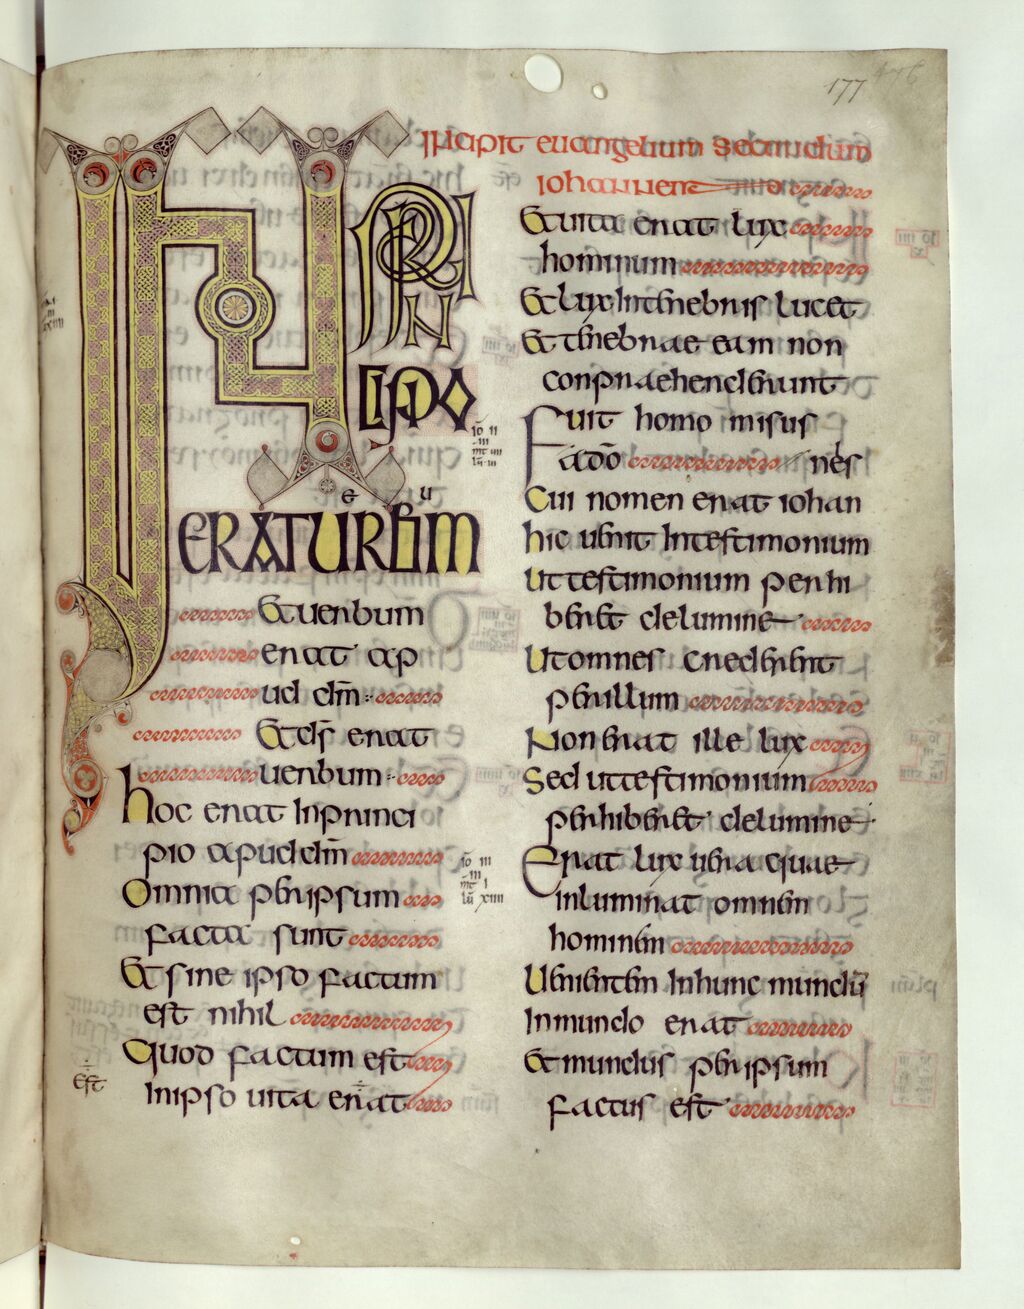 177
Incipit euangelium secundum
Iohannen
IN PRIN
CIPIO
e u
ERAT UERBUM
Et uerbum
erat ap
ud dm̄
Et ds̄ erat
uerbum
hoc erat Inprinci
pio apud dm̄
Omnia per ipsum
facta sunt
Et sine ipso factum
est nihil
Quod factum est
÷ est
Inipso uita erat
iō ii
iii
mt iii
lū iii
iō iii
iii
mt i
lū xiiii
Et uita erat lux
hominum
Et lux Intenebris lucet
Et tenebrae eam non
conpraehenderunt
Fuit homo misus
adō
nēs
Cui nomen erat iohan
hic uenit Intestimonium
Ut testimonium perhi
beret delumine
Ut omnes crederent
per illum
Non erat ille lux
Sed ut testimonium
perhiberet delumine
Erat lux uera quae
inluminat omnem
hominem
Uenientem Inhunc mundū
Inmundo erat
Et mundus per ipsum
factus est